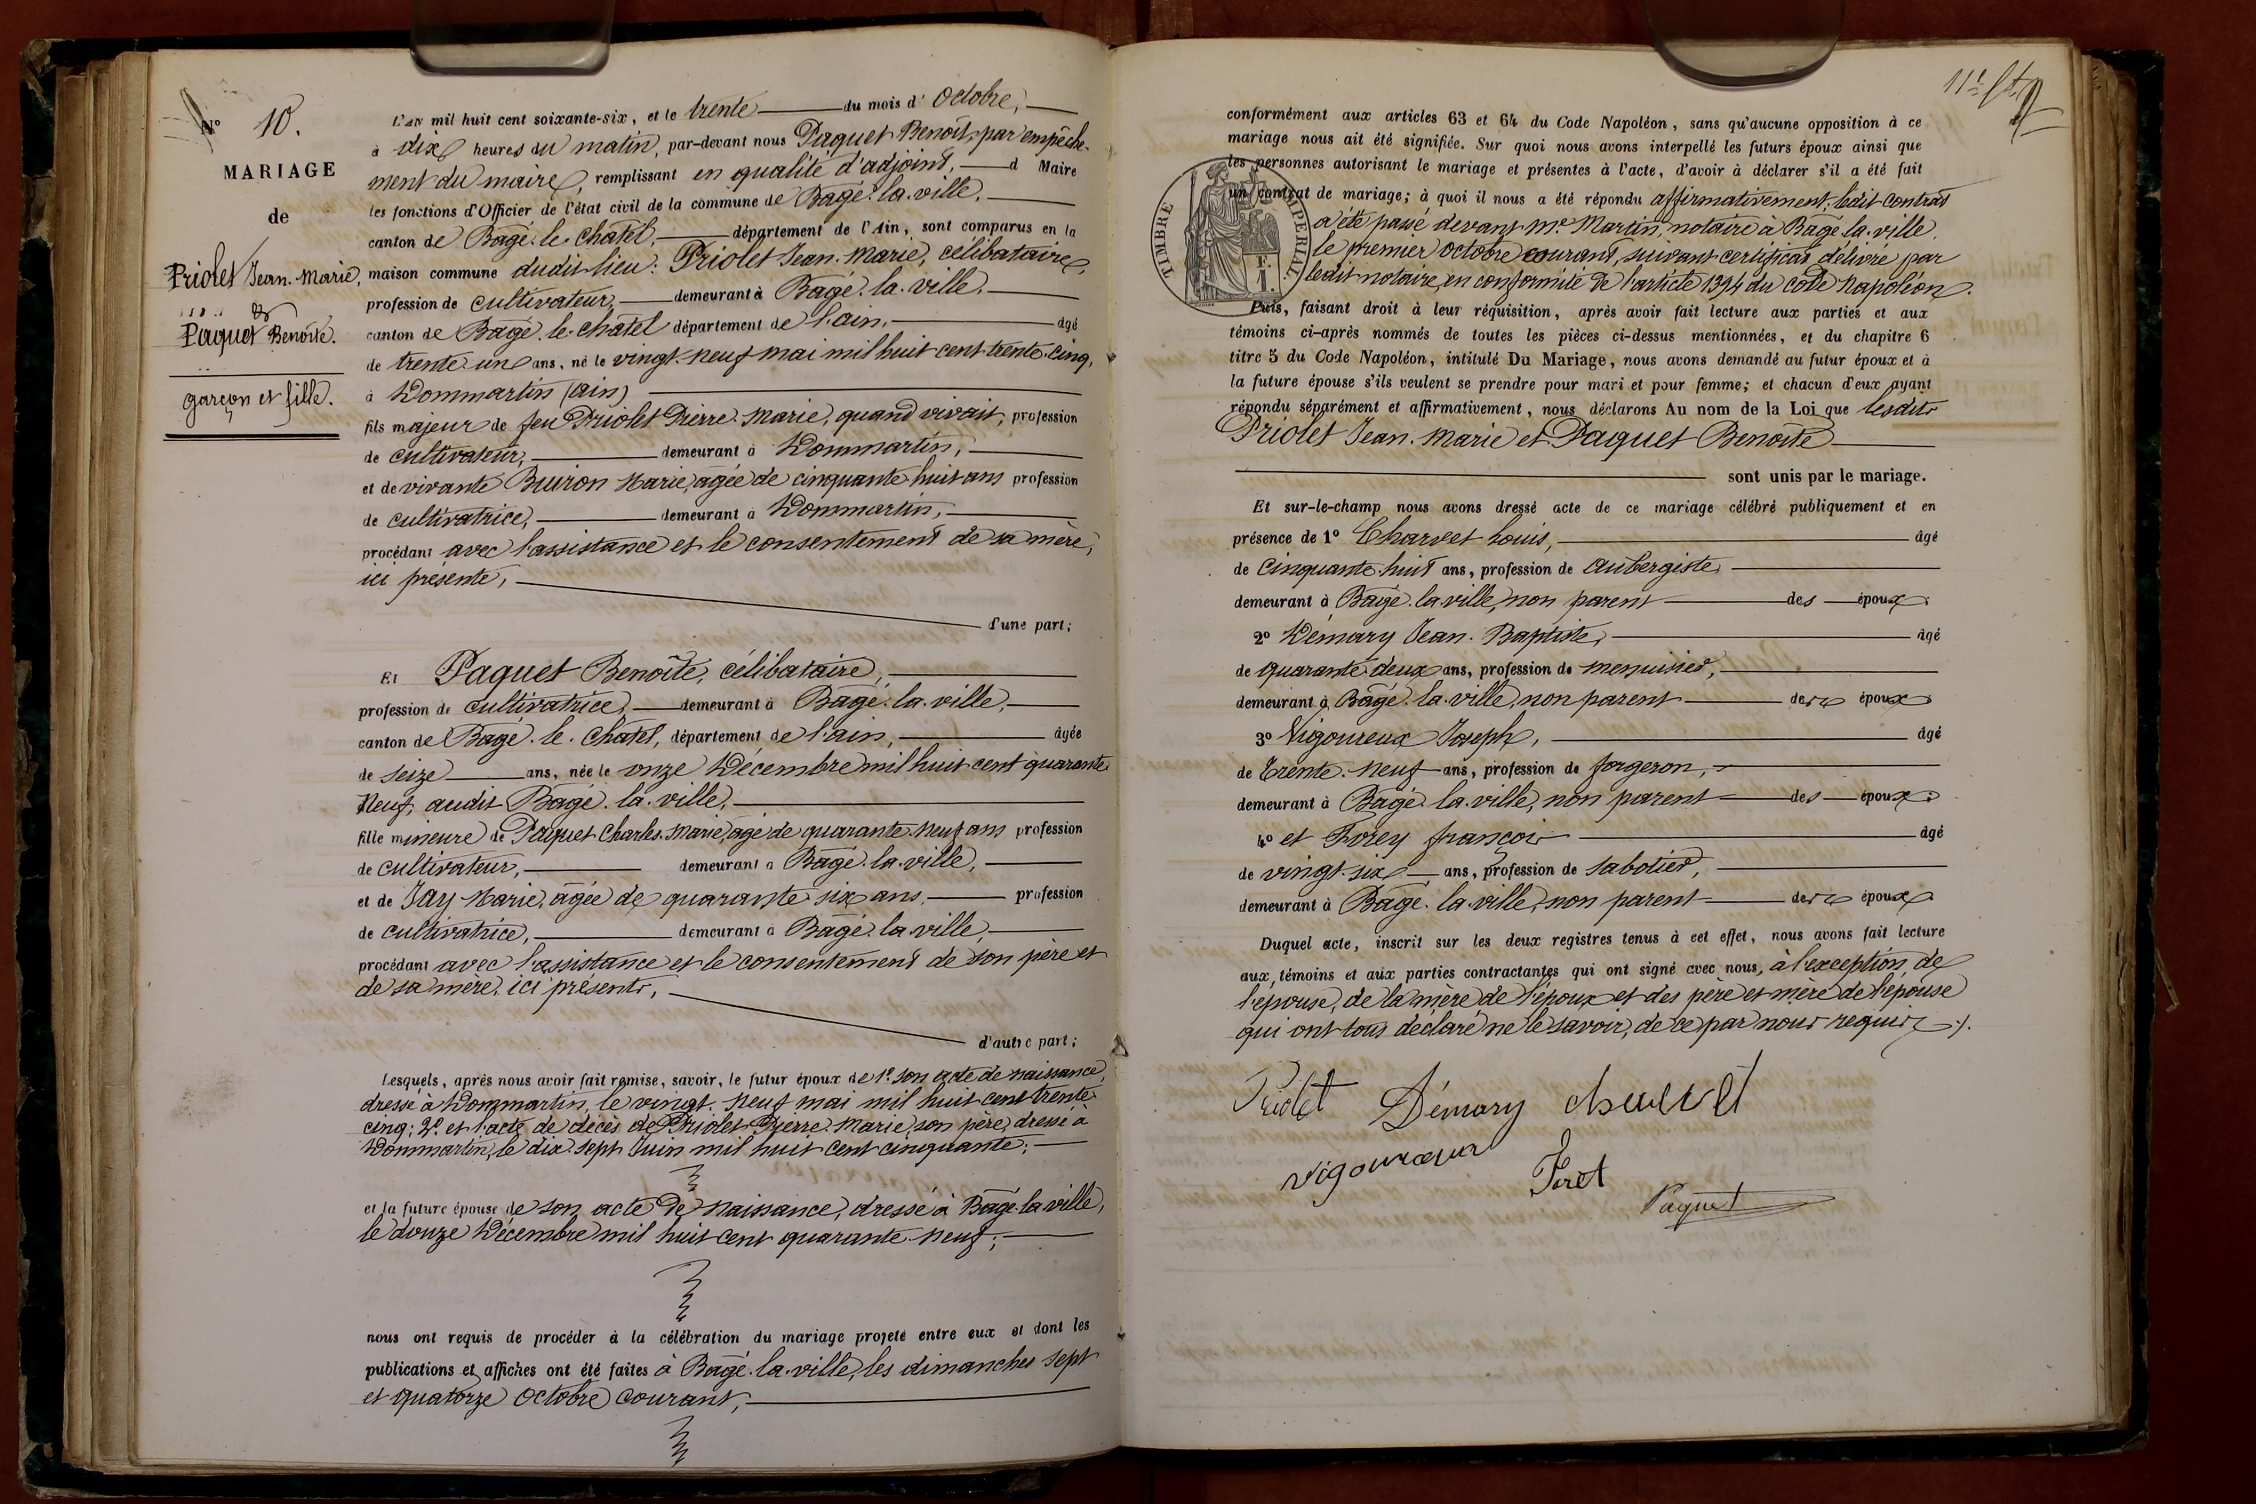 N° 10.
MARIAGE
de
Priolet Jean-Marie,
&
Paquet Benoîte.
garçon et fille.
L'AN mil huit cent soixante-six, et le trente du mois d'Octobre,
à dix heures du matin, par-devant nous Paquet Benoît, par empêche-
ment du maire, remplissant en qualité d'adjoint, d Maire
les fonctions d'Officier de l'état civil de la commune de Bâgé-la-ville,
canton de Bâgé-le-Châtel, département de l'Ain, sont comparus en la
maison commune dudit lieu: Priolet Jean-Marie, célibataire,
profession de cultivateur, demeurant à Bâgé-la-ville,
canton de Bâgé-le-Châtel département de l'ain, âgé
de trente un ans, né le vingt-neuf mai mil huit cent trente-cinq,
à Dommartin (ain)
fils majeur de feu Priolet Pierre-Marie, quand vivait, profession
de cultivateur, demeurant à Dommartin,
et de vivante Buiron Marie, âgée de cinquante huit ans profession
de cultivatrice, demeurant à Dommartin,
procédant avec l'assistance et le consentement de sa mère,
ici présente,
d'une part;
Et Paquet Benoîte, célibataire,
profession de cultivatrice, demeurant à Bâgé-la-ville,
canton de Bâgé-le-Châtel, département de l'ain, âgée
de seize ans, née le onze Décembre mil huit cent quarante
Neuf, audit Bâgé-la-ville,
fille mineure de Paquet Charles-Marie, âgé de quarante-neuf ans profession
de cultivateur, demeurant à Bâgé-la-ville,
et de Jay Marie, âgée de quarante six ans, profession
de cultivatrice, demeurant à Bâgé-la-ville,
procédant avec l'assistance et le consentement de son père et
de sa mère, ici présents,
d'autre part;
Lesquels, après nous avoir fait remise, savoir, le futur époux de 1° son acte de naissance,
dressé à Dommartin, le vingt-neuf mai mil huit cent trente
cinq; 2° et l'acte de décès de Priolet Pierre-Marie, son père, dressé à
Dommartin, le dix-sept Juin mil huit cent cinquante;
et la future épouse de son acte de naissance, dressé à Bâgé-la-ville,
le douze Décembre mil huit cent quarante-neuf;
nous ont requis de procéder à la célébration du mariage projeté entre eux et dont les
publications et affiches ont été faites à Bâgé-la-ville, les dimanches sept
et quatorze Octobre courant,
conformément aux articles 63 et 64 du Code Napoléon, sans qu'aucune opposition à ce
mariage nous ait été signifiée. Sur quoi nous avons interpellé les futurs époux ainsi que
les personnes autorisant le mariage et présentes à l'acte, d'avoir à déclarer s'il a été fait
un contrat de mariage; à quoi il nous a été répondu affirmativement; ledit contrat
a été passé devant Me Martin, notaire à Bâgé-la-ville,
le premier octobre courant, suivant certificat délivré par
ledit notaire, en conformité de l'article 1394 du code Napoléon.
TIMBRE IMPERIAL.
F.
1.
Puis, faisant droit à leur réquisition, après avoir fait lecture aux parties et aux
témoins ci-après nommés de toutes les pièces ci-dessus mentionnées, et du chapitre 6
titre 5 du Code Napoléon, intitulé Du Mariage, nous avons demandé au futur époux et à
la future épouse s'ils veulent se prendre pour mari et pour femme; et chacun d'eux ayant
répondu séparément et affirmativement, nous déclarons Au nom de la Loi que lesdits
Priolet Jean-Marie et Paquet Benoîte
sont unis par le mariage.
Et sur-le-champ nous avons dressé acte de ce mariage célébré publiquement et en
présence de 1° Charvet Louis, âgé
de Cinquante-huit ans, profession de aubergiste,
demeurant à Bâgé-la-ville, non parent des époux.
2° Démary Jean-Baptiste, âgé
de quarante-deux ans, profession de menuisier,
demeurant à Bâgé-la-ville, non parent des époux.
3° Vigoureux Joseph, âgé
de trente-neuf ans, profession de forgeron,
demeurant à Bâgé-la-ville, non parent des époux.
4° et Forey françois âgé
de vingt-six ans, profession de sabotier,
demeurant à Bâgé-la-ville, non parent des époux.
Duquel acte, inscrit sur les deux registres tenus à cet effet, nous avons fait lecture
aux témoins et aux parties contractantes qui ont signé avec nous, à l'exception, de
l'épouse, de la mère de l'époux et des père et mère de l'épouse
qui ont tous déclaré ne le savoir, de ce par nous requis.
Priolet Démary charvet
vigoureux
Foret
Paquet